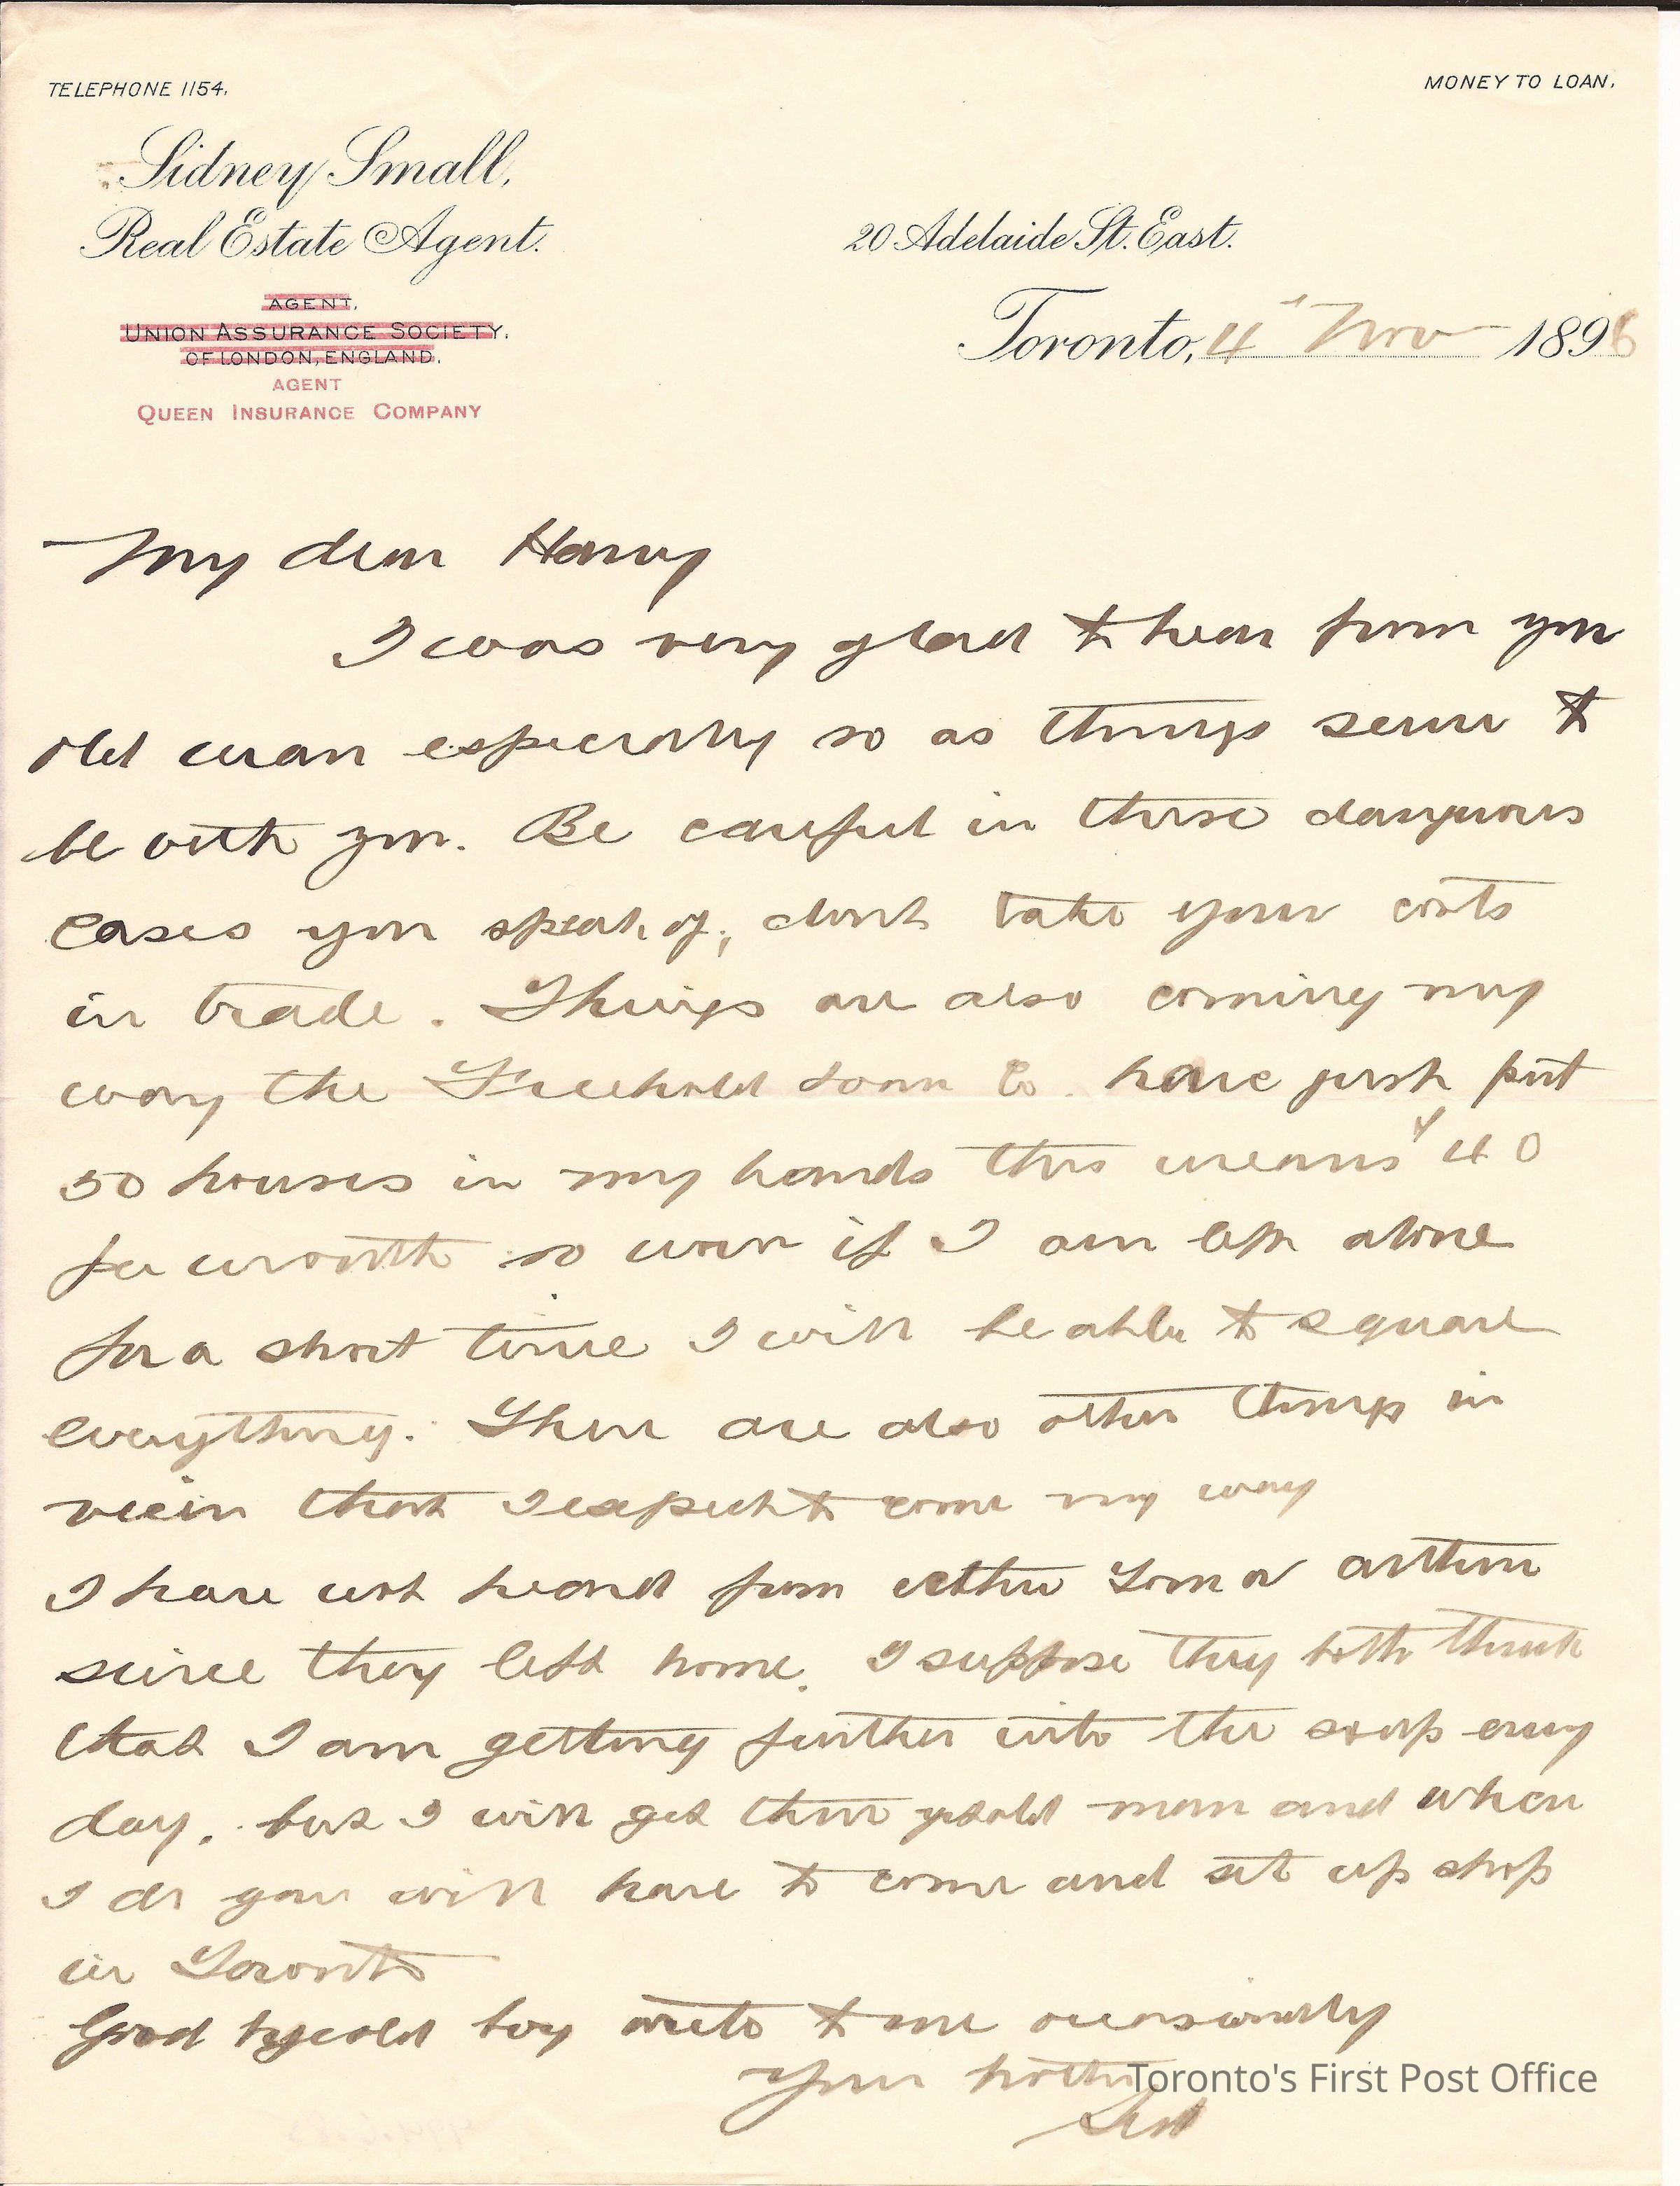 TELEPHONE 1154.
MONEY TO LOAN.
Sidney Small,
Real Estate Agent.
20 Adelaide St. East.
AGENT,
UNION ASSURANCE SOCIETY,
OF LONDON, ENGLAND.
AGENT
QUEEN INSURANCE COMPANY
Toronto, 4" Nov 1896
My dear Harry
I was very glad to hear from you
old man especially so as things seem to
be with you. Be careful in those dangerous
cases you speak of, don't take your costs
in trade. Things are also coming my
way the Freehold Loan Co. have just put
50 houses in my hands this means $40
per month so now if I am left alone
for a short time I will be able to square
everything. There are also other things in
view that I expect to come my way
I have not heard from either Tom or Arthur
since they left home. I suppose they both think
that I am getting further into the soup every
day. but I will get there yet old man and when
I do you will have to come and set up shop
in Toronto
Good bye old boy write to me occasionally
Your brother
Sid
Toronto's First Post Office